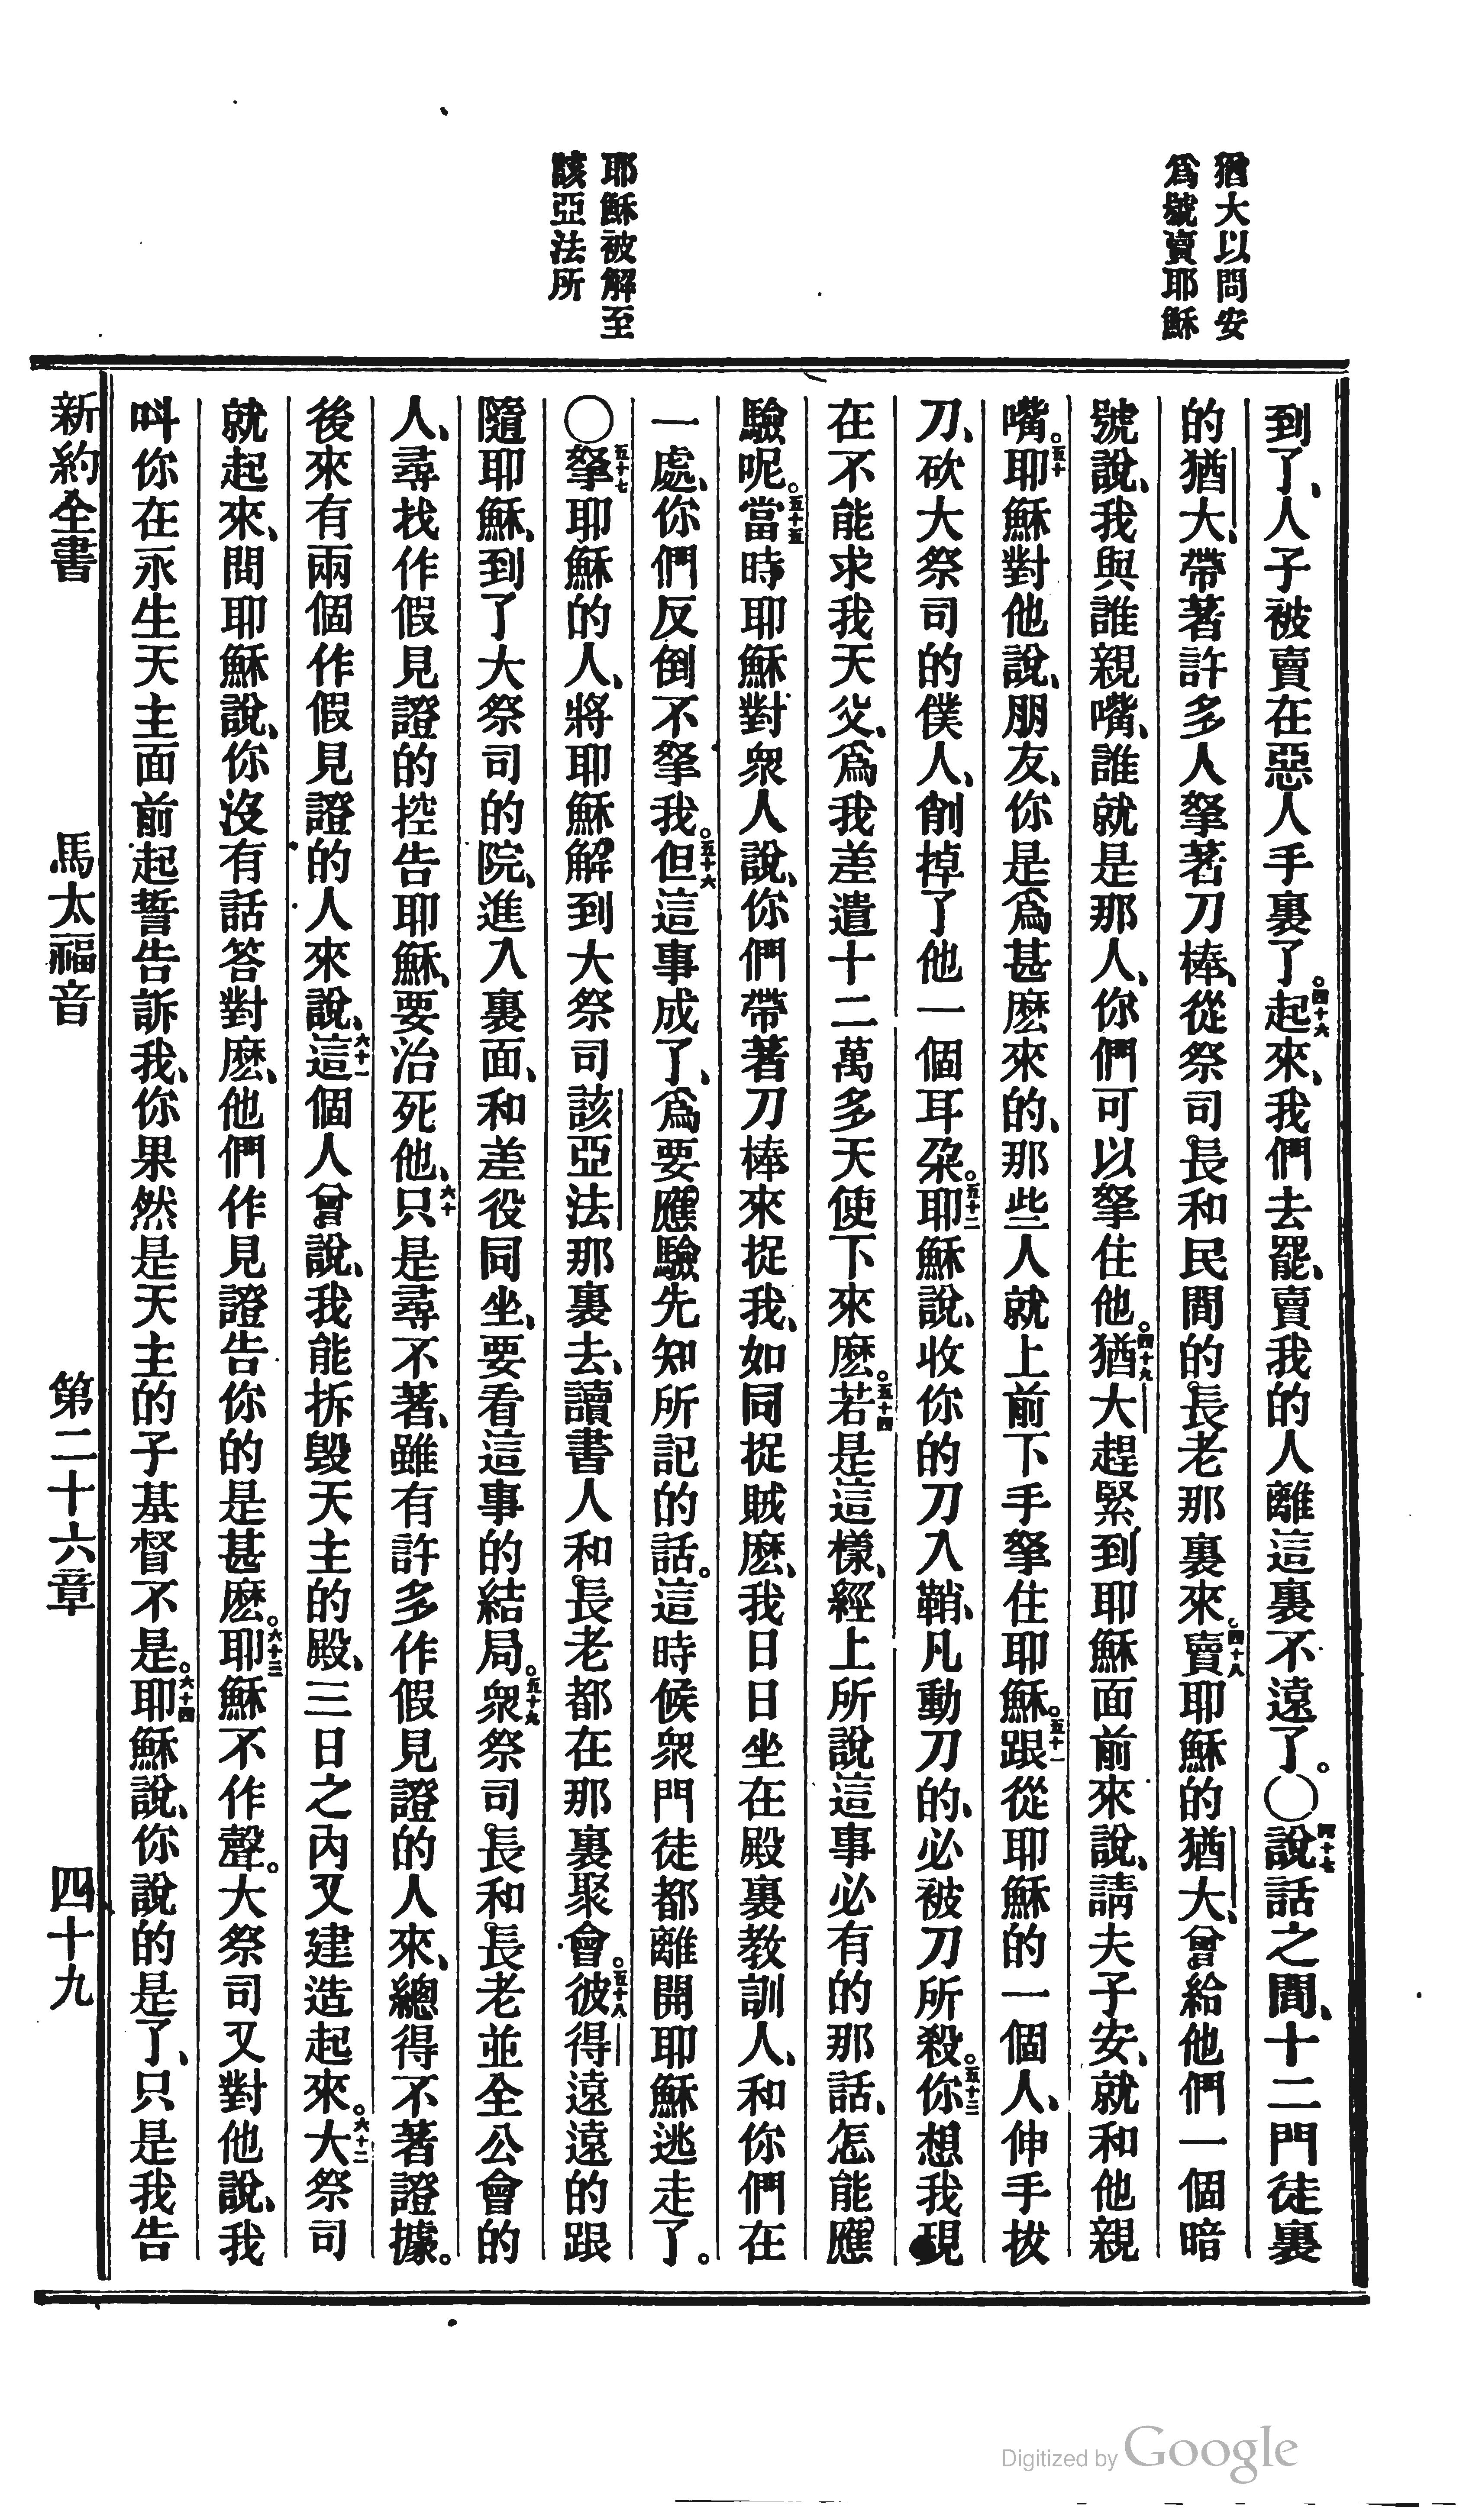 猶大以問安
爲號賣耶穌
耶穌被解至
該亞法所
到了、人子被賣在惡人手裏了。四十六起來、我們去罷、賣我的人離這裏不遠了。〇四十七說話之間、十二門徒裏
的猶大、帶著許多人拏著刀棒、從祭司長和民間的長老那裏來。四十八賣耶穌的猶大、曾給他們一個暗
號說、我與誰親嘴、誰就是那人、你們可以拏住他。四十九猶大趕緊到耶穌面前來說、請夫子安、就和他親
嘴。五十耶穌對他說、朋友、你是爲甚麽來的、那些人就上前下手拏住耶穌。五十一跟從耶穌的一個人、伸手拔
刀、砍大祭司的僕人、削掉了他一個耳朶。五十二耶穌說、收你的刀入鞘、凡動刀的、必被刀所殺。五十三你想我現
在不能求我天父、爲我差遣十二萬多天使下來麽。五十四若是這樣、經上所說這事必有的那話、怎能應
驗呢。五十五當時耶穌對衆人說、你們帶著刀棒來捉我、如同捉賊麽、我日日坐在殿裏教訓人、和你們在
一處、你們反倒不拏我。五十六但這事成了、爲要應驗先知所記的話。這時候衆門徒都離開耶穌逃走了。
〇五十七拏耶穌的人、將耶穌解到大祭司該亞法那裏去、讀書人和長老都在那裏聚會。五十八彼得遠遠的跟
隨耶穌、到了大祭司的院、進入裏面、和差役同坐、要看這事的結局。五十九衆祭司長和長老並全公會的
人、尋找作假見證的控告耶穌、要治死他、六十只是尋不著、雖有許多作假見證的人來、總得不著證據。
後來有兩個作假見證的人來說、六十一這個人曾說、我能拆毀天主的殿、三日之內又建造起來。六十二大祭司
就起來、問耶穌說、你沒有話答對麽、他們作見證告你的是甚麽。六十三耶穌不作聲。大祭司又對他說、我
呌你在永生天主面前起誓告訴我、你果然是天主的子基督不是。六十四耶穌說、你說的是了、只是我告
新約全書 馬太福音 第二十六章 四十九
Digitized by Google